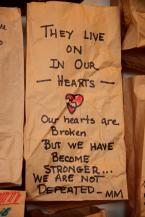 THEY LIVE
ON
IN OUR
- HEARTS -
Our hearts are
Broken
BUT WE HAVE
BECOME
STRONGER...
WE ARE NOT
DEFEATED - MM